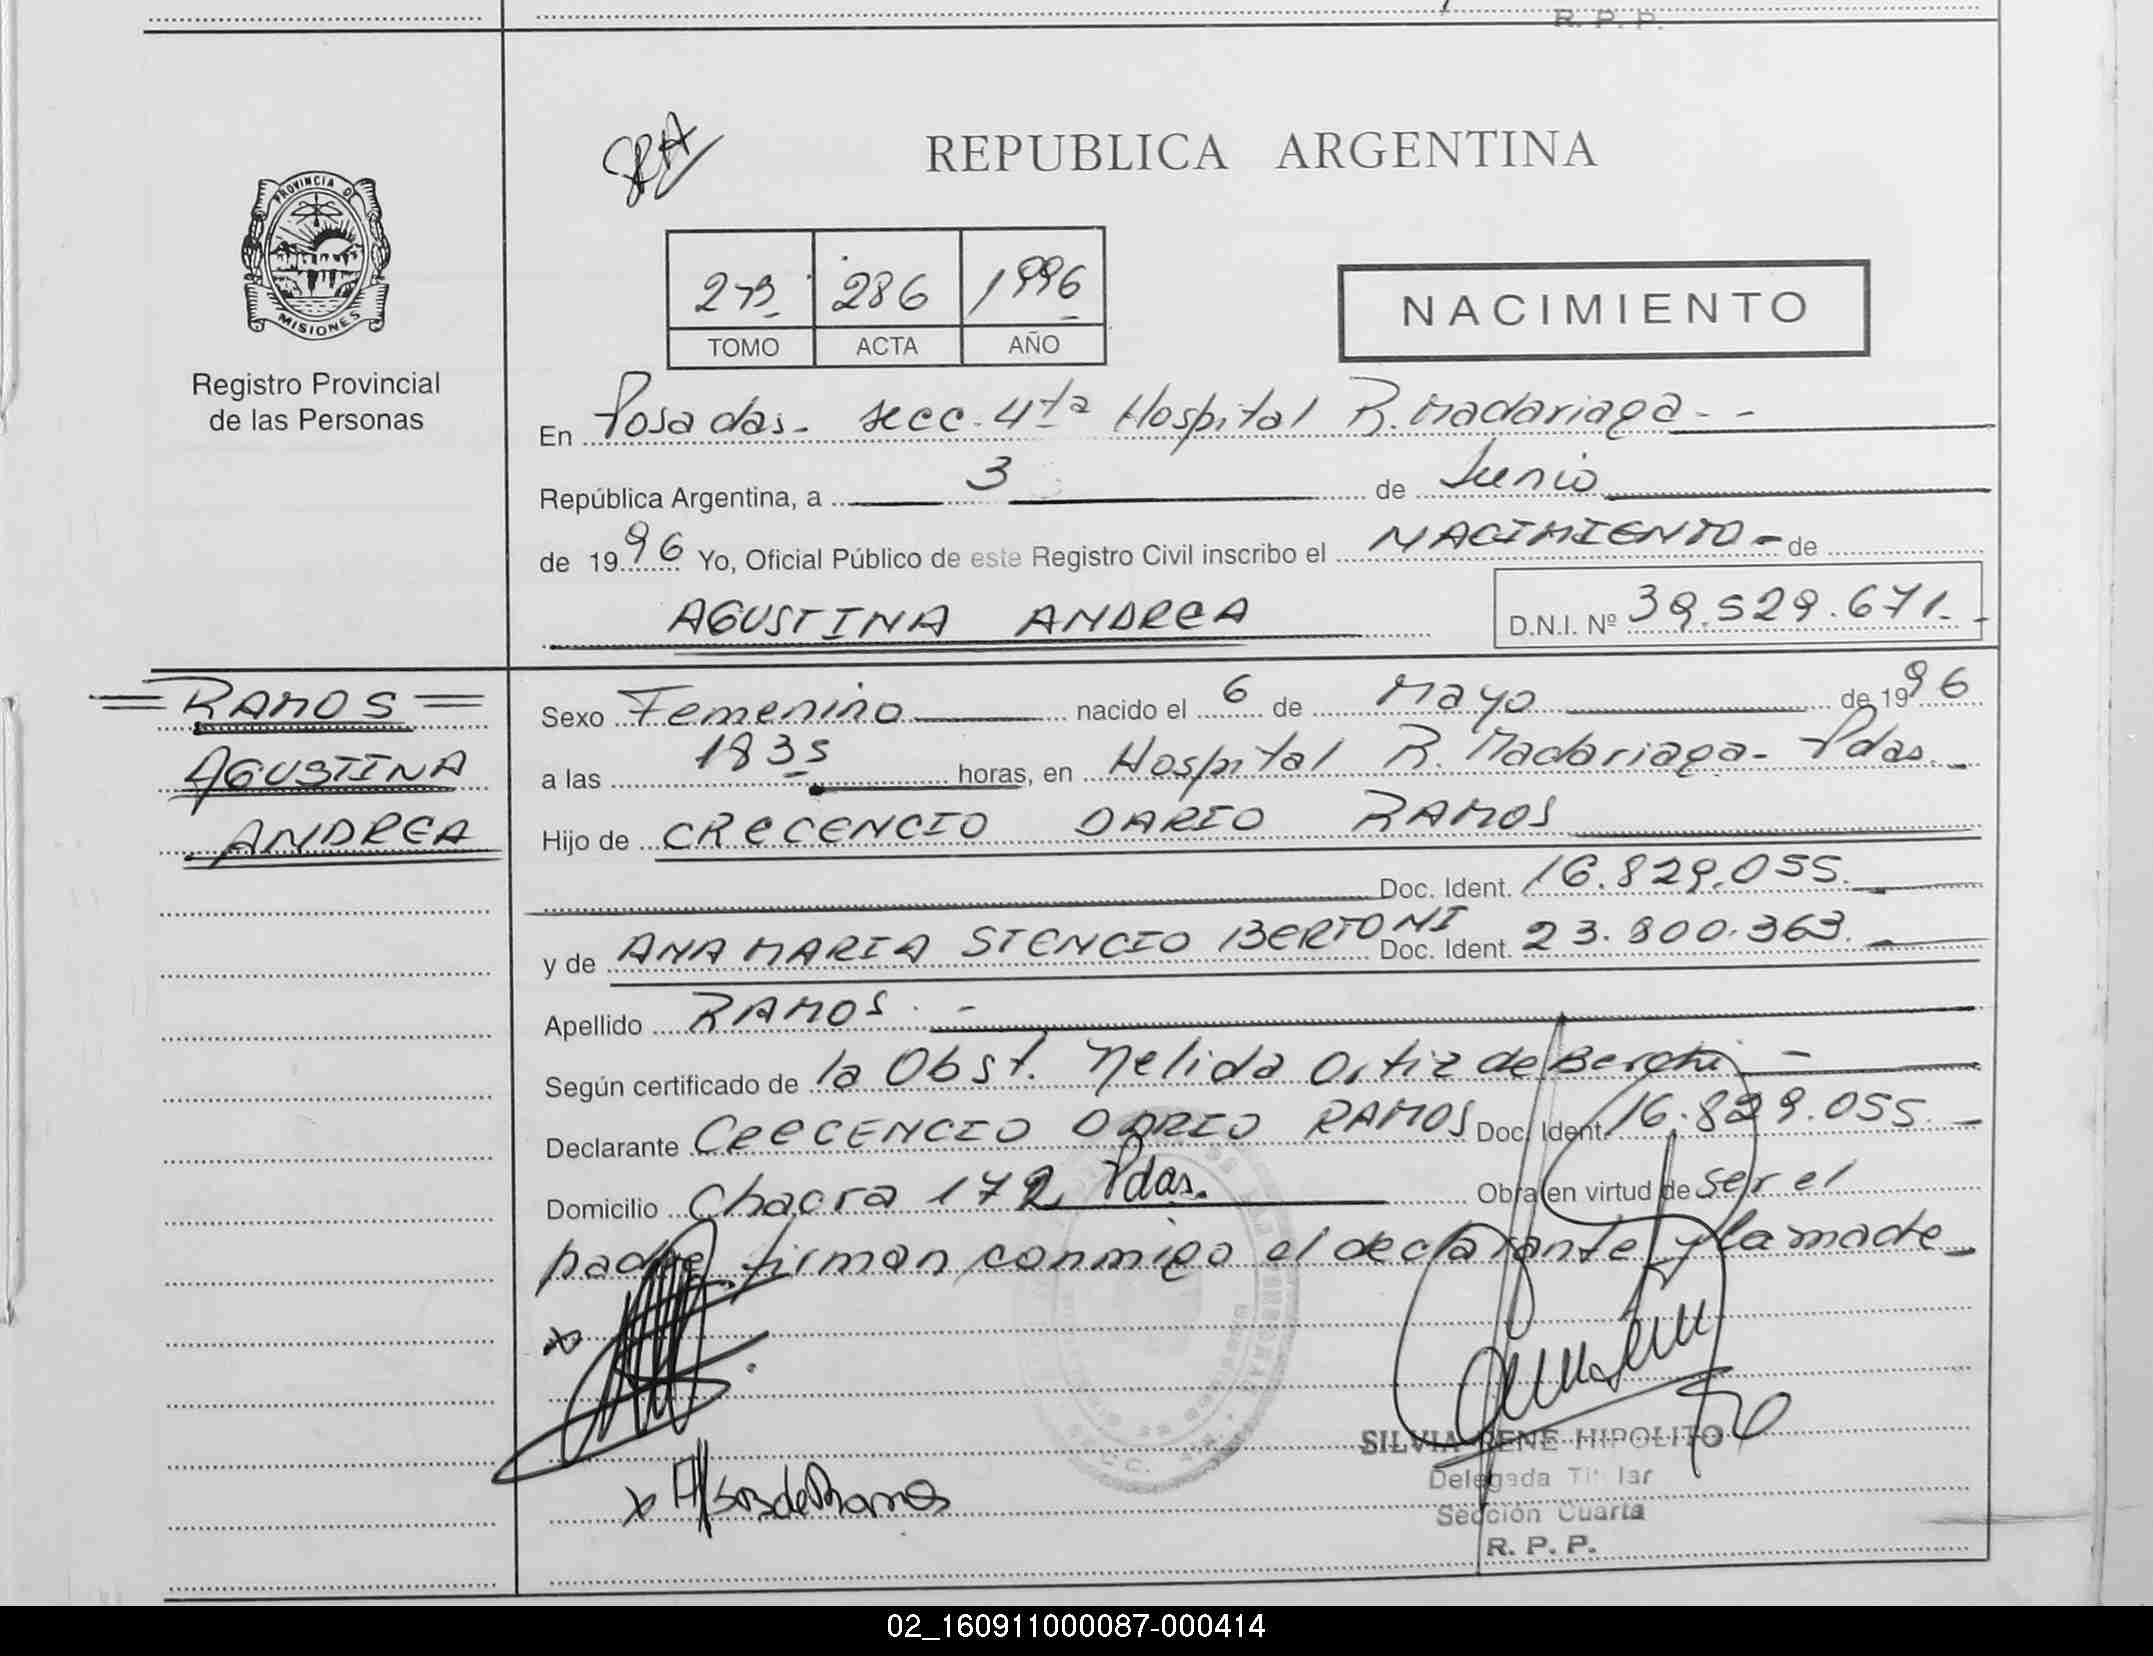 R. P. P.
REPUBLICA ARGENTINA
PROVINCIA DE
MISIONES
Registro Provincial
de las Personas
286 1996
TOMO ACTA AÑO
NACIMIENTO
En Posadas. secc. 4ta Hospital R. Madariaga - -
República Argentina, a 3 de Junio
de 1996 Yo, Oficial Público de este Registro Civil inscribo el NACIMIENTO - de
AGUSTINA ANDREA D.N.I. Nº 39.529.671.-
= RAMOS =
AGUSTINA
ANDREA
Sexo Femenino nacido el 6 de Mayo de 1996
a las 1835 horas, en Hospital R. Madariaga - Pdas. -
Hijo de CRECENCIO DARIO RAMOS
Doc. Ident. 16.829.055. -
y de ANA MARIA STENCIO BERTONI Doc. Ident. 23.800.363. -
Apellido RAMOS. -
Según certificado de la Obst. Nelida Ortiz de Berchi -
Declarante CRECENCIO DARIO RAMOS Doc. Ident. 16.829.055. -
Domicilio Chacra 172 Pdas. Obra en virtud de ser el
padre firman conmigo el declarante y la madre -
SILVIA RENE HIPOLITO
Delegada Titular
Sección Cuarta
R. P. P.
02_160911000087-000414